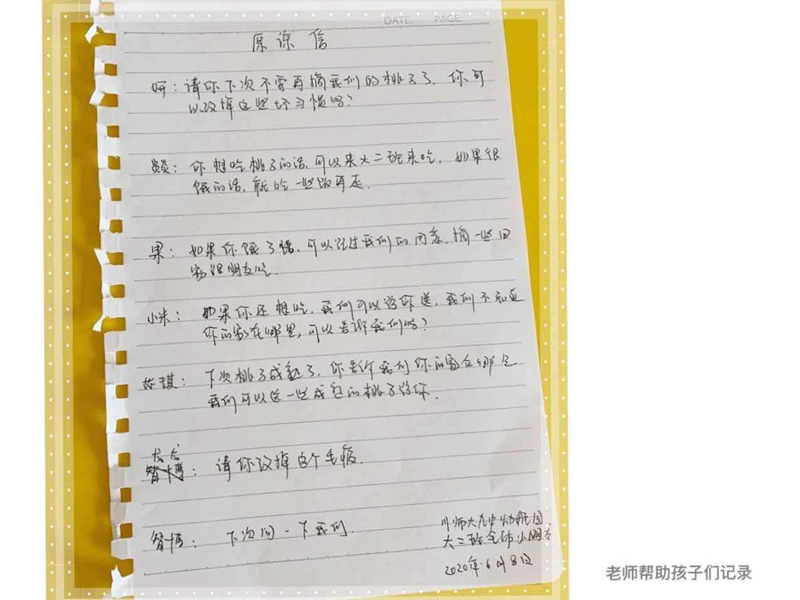 DATE. PAGE
原谅信
妍：请你下次不要再摘我们的桃子了，你可
以改掉这些坏习惯吗？
你想吃桃子的话，可以来大二班来吃，如果很
饿的话，就吃一些饭再走.
果：如果你饿了话，可以经过我们的同意，摘一些回
家跟朋友吃.
小米：如果你还想吃，我们可以给你送，我们不知道
你的家在哪里，可以告诉我们吗？
琪：下次桃子成熟了，你告诉我们你的家在哪里
我们可以送一些成包的桃子给你.
请你改掉这个毛病.
智博：下次问一下我们.
川师大 幼稚园
大二班全体小朋友
2020年6月8日
老师帮助孩子们记录